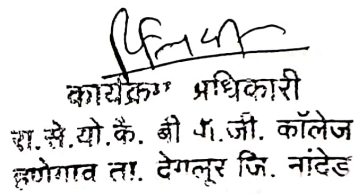 कार्यक्रम प्रधिकारी
रा.से.यो.कै. बी ए.जी. कॉलेज
हाणेगाव ता. देगलूर जि. नांदेड